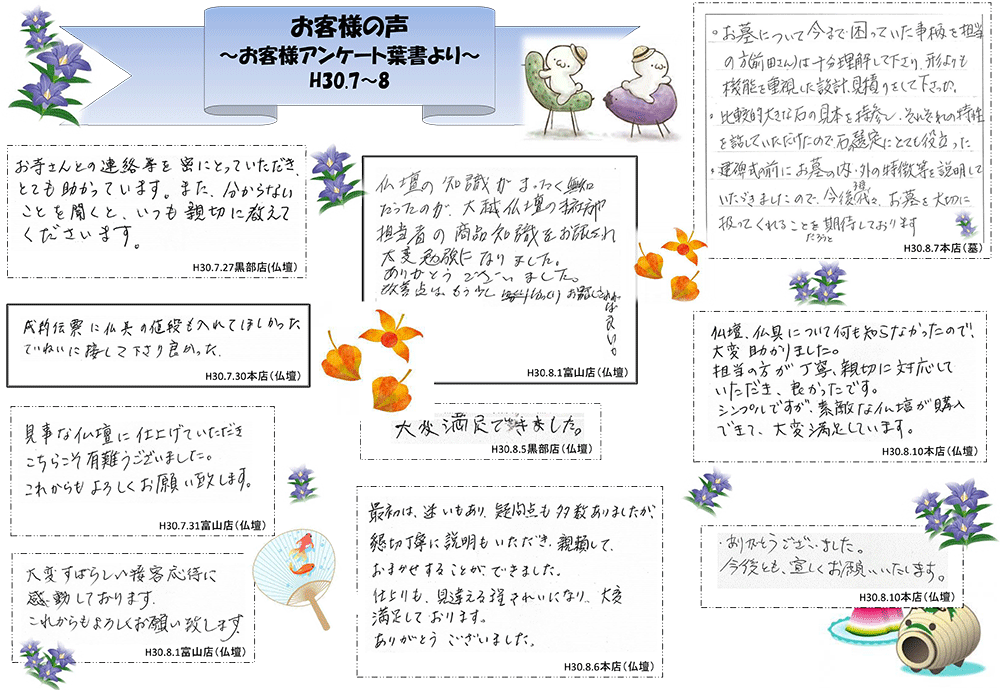 お客様の声
～お客様アンケート葉書より～
H30.7～8
お寺さんとの連絡等を密にとっていただき、
とても助かっています。また、分からない
ことを聞くと、いつも親切に教えて
くださいます。
H30.7.27黒部店(仏壇)
仏具の値段も入れてほしかった
ていねいに接して下さり良かった。
H30.7.30本店(仏壇)
見事な仏壇に仕上げていただき
こちらこそ有難うございました。
これからもよろしくお願い致します。
H30.7.31富山店(仏壇)
大変すばらしい接客応待に
感動しております。
これからもよろしくお願い致します。
H30.8.1富山店(仏壇)
仏壇の知識がまったく無知
だったのが、大越仏壇の
担当者の商品知識をお話され
大変勉強になりました。
ありがとうございました。
改善点は、もう少しゆっくりお話しされればよい。
H30.8.1富山店(仏壇)
大変満足できました。
H30.8.5黒部店(仏壇)
最初は、迷いもあり、疑問点も多数ありましたが、
懇切丁寧に説明もいただき、親頼して、
おまかせすることが、できました。
仕上りも、見違える程きれいになり、大変
満足しております。
ありがとうございました。
H30.8.6本店(仏壇)
・お墓について今まで困っていた事柄を担当
の方(前田さん)は十分理解して下さり、形よりも
機能を重視した設計、見積りをして下さった。
・比較的大きな石の見本を持参し、それぞれの特性
を話していただけたので石選定にとても役立った
・建碑式前にお墓の内・外の特徴等を説明して
いただきましたので、今後代々、お墓を大切に
扱ってくれるだろうことを期待しております
H30.8.7本店(墓)
仏壇、仏具について何も知らなかったので、
大変助かりました。
担当の方が丁寧、親切に対応して
いただき、良かったです。
シンプルですが、素敵な仏壇が購入
できて、大変満足しています。
H30.8.10本店(仏壇)
・ありがとうございました。
今後とも、宜しくお願いいたします。
H30.8.10本店(仏壇)